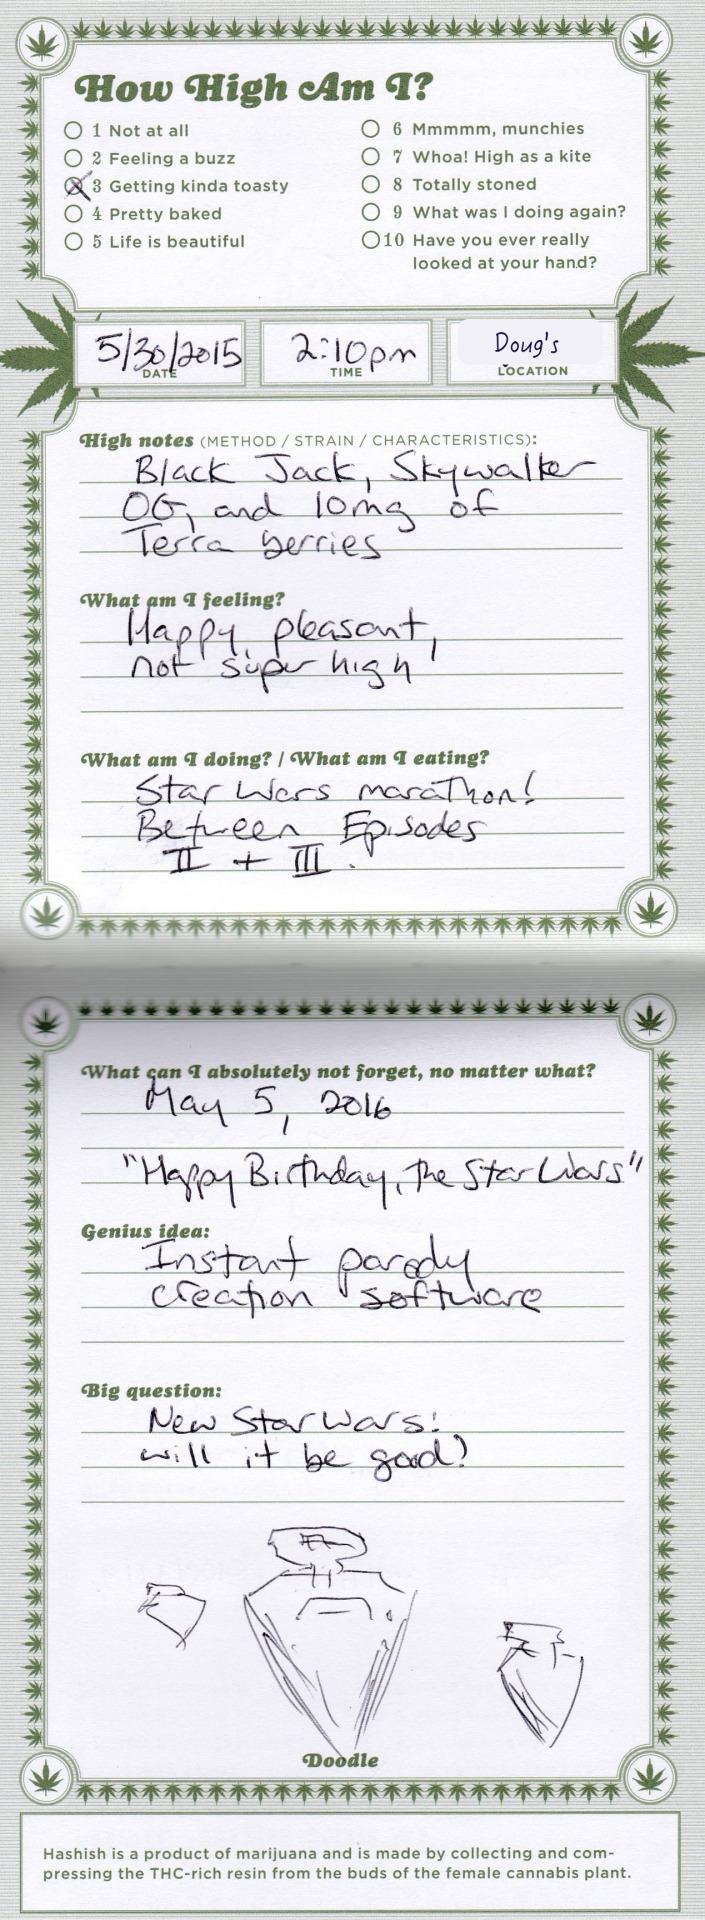 How High Am I?
1 Not at all
2 Feeling a buzz
3 Getting kinda toasty
4 Pretty baked
5 Life is beautiful
6 Mmmmm, munchies
7 Whoa! High as a kite
8 Totally stoned
9 What was I doing again?
10 Have you ever really
looked at your hand?
5/30/2015
DATE
2:10pm
TIME
Doug's
LOCATION
High notes (METHOD / STRAIN / CHARACTERISTICS):
Black Jack, Skywalker
OG, and 10mg of
Terra berries
What am I feeling?
Happy, pleasant,
not super high
What am I doing? / What am I eating?
Star Wars marathon!
Between Episodes
II + III.
What can I absolutely not forget, no matter what?
May 5, 2016
"Happy Birthday, the Star Wars"
Genius idea:
Instant parody
creation software
Big question:
New Star Wars:
will it be good?
Doodle
Hashish is a product of marijuana and is made by collecting and com-
pressing the THC-rich resin from the buds of the female cannabis plant.